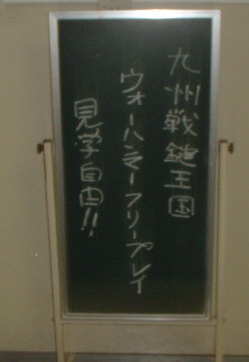 九州戦鎚王国
ウォーハンマーフリープレイ
見学自由!!